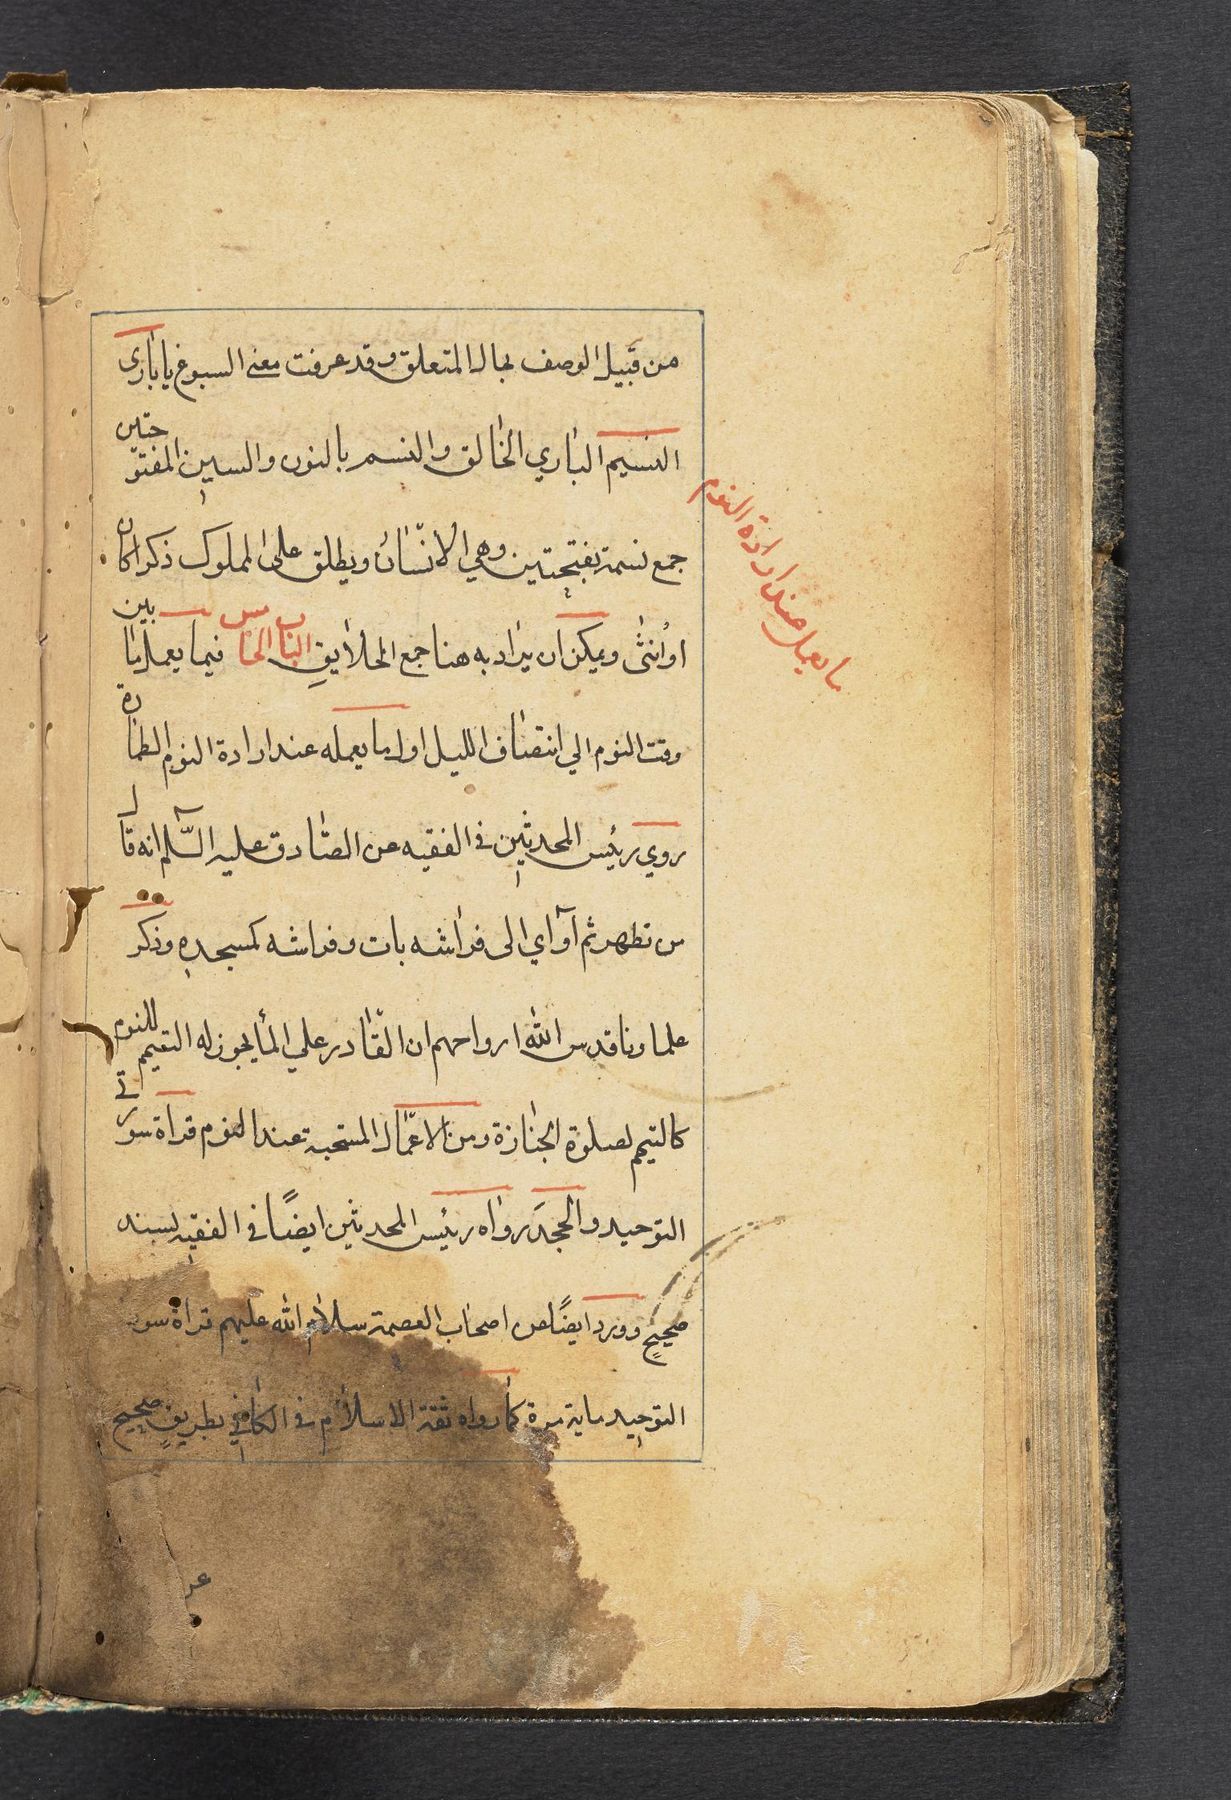 من قبيل الوصف بحال المتعلق وقد عرفت معنى السبوغ يا باري
النسيم الباري الخالق والنسم بالنون والسين المفتوحتين
جمع نسمة بفتحتين وهي الانسان ويطلق على المملوك ذكرا كان
او انثى ويمكن ان يراد به هنا جمع الخلايق الباب الخامس فيما يعمل ما بين
وقت النوم الي انتصاف الليل اول ما يعمله عند ارادة النوم الطهارة
روي رئيس المحدثين في الفقيه عن الصادق عليه السلم انه قال
من تطهر ثم آوآي الى فراشه بات وفراشه كمسجده وذكر
علماونا قدس الله ارواحهم ان القادر علي المأ يجوز له التيمم للنوم
كالتيمم لصلوة الجنازة ومن الاعمال المستحبة عند النوم قرأة سورتي
التوحيد والجحد رواه رئيس المحدثين ايضًا في الفقيه بسند
صحيح وورد ايضًا عن اصحاب العصمة سلام الله عليهم قراة سورة
التوحيد ماية مرة كما رواه ثقة الاسلام في الكافي بطريق صحيح
عن
ما يعمل عند ارادة النوم